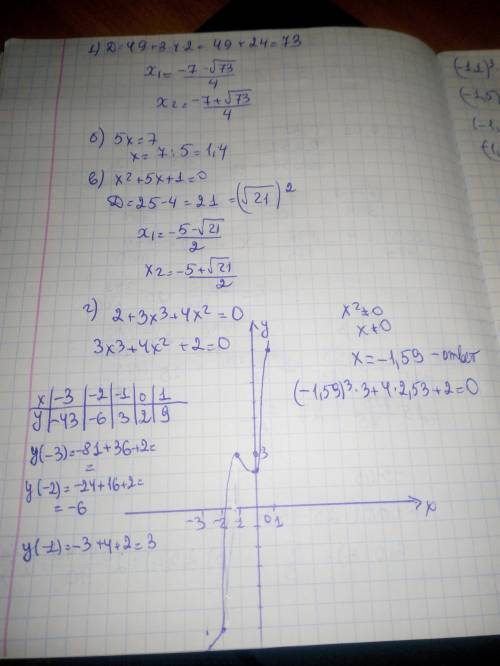 1) D=49+3·4·2= 49+24=73
x₁= -7-√73/4
x₂= -7+√73/4
б) 5x=7
x= 7:5=1,4
в) x²+5x+1=0
D=25-4=21=(√21)²
x₁= -5-√21/2
x₂= -5+√21/2
г) 2+3x³+4x²=0
3x³+4x²+2=0
x²≠0
x≠0
x=-1,59-ответ
(-1,59)³·3+4·2,53+2=0
x|-3|-2|-1|0|1
y|-43|-6|3|2|9
y(-3)=-81+36+2=
=
y(-2)=-24+16+2=
=-6
y(-1)=-3+4+2=3
y
3
-3 -2 -1 0 1
x
(-1,1)³
(-1,5)